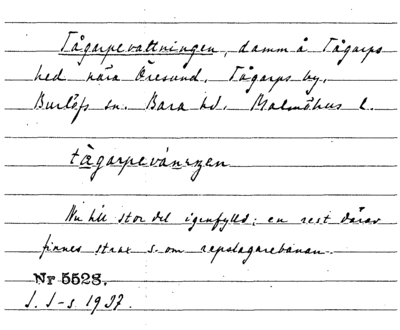 Tågarpevattningen, damm å Tågarps
hed nära Öresund, Tågarps by,
Burlöfs sn. Bara hd. Malmöhus l.
tågarpevánıŋen
Nu till stor del igenfylld; en rest därav
finnes strax s. om repslagarebanan.
Nr 5528.
I. I-s 1937.